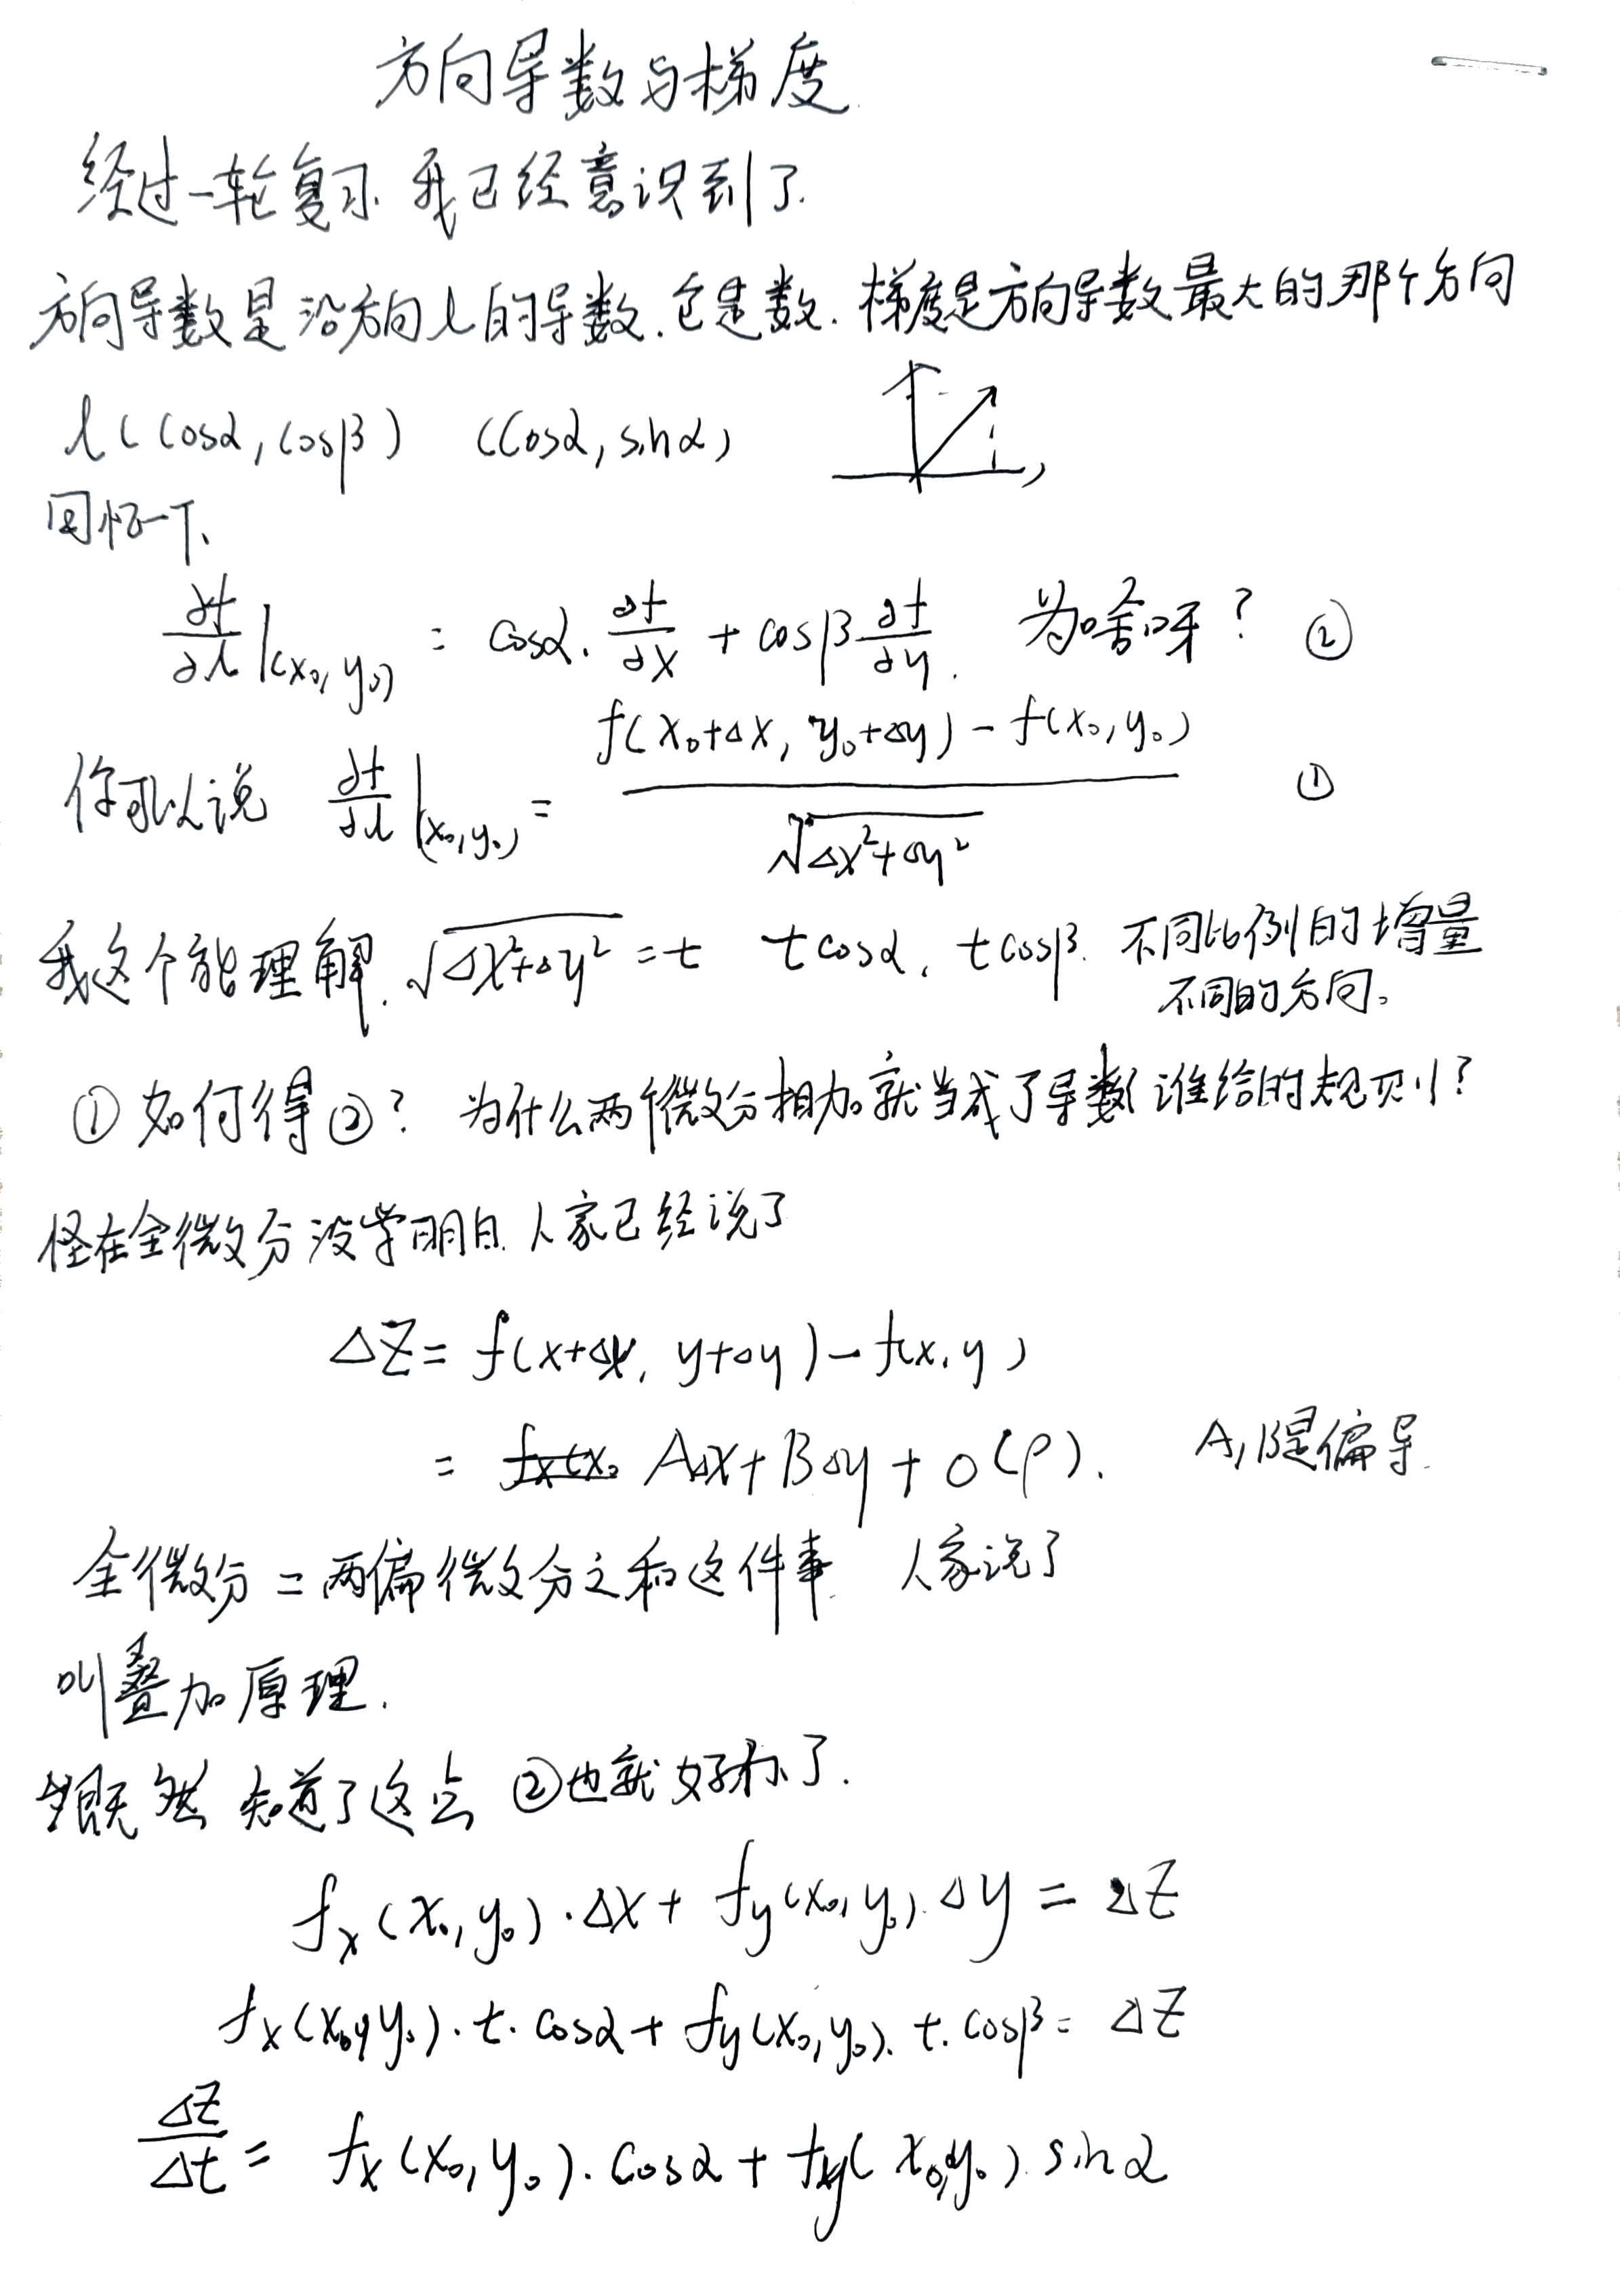 方向导数与梯度.
经过一轮复习 我已经意识到了.
方向导数是沿方向l的导数.它是数. 梯度是方向导数最大的那个方向
l(cosα, cosβ) (cosα, sinα)
回忆一下、
∂f/∂l|(x₀,y₀) = cosα·∂f/∂x + cosβ ∂f/∂y. 为啥呀? ②
你可以说 ∂f/∂l|(x₀,y₀) = f(x₀+Δx, y₀+Δy) - f(x₀,y₀) / √Δx²+Δy² ①
我这个能理解. √Δx²+Δy² = t tcosα, tcosβ. 不同比例的增量
不同的方向。
① 如何得②? 为什么两个微分相加就当成了导数 谁给的规则?
怪在全微分没学明白. 人家已经说了
ΔZ = f(x+Δx, y+Δy) - f(x,y)
= AΔx + BΔy + o(ρ). A,B是偏导.
全微分 = 两偏微分之和这件事. 人家说了
叫叠加原理.
既然 知道了这点 ②也就好办了.
fx(x₀,y₀)·Δx + fy(x₀,y₀)·Δy = ΔZ
fx(x₀,y₀)·t·cosα + fy(x₀,y₀)·t·cosβ = ΔZ
ΔZ/Δt = fx(x₀,y₀)·cosα + fy(x₀,y₀)·sinα